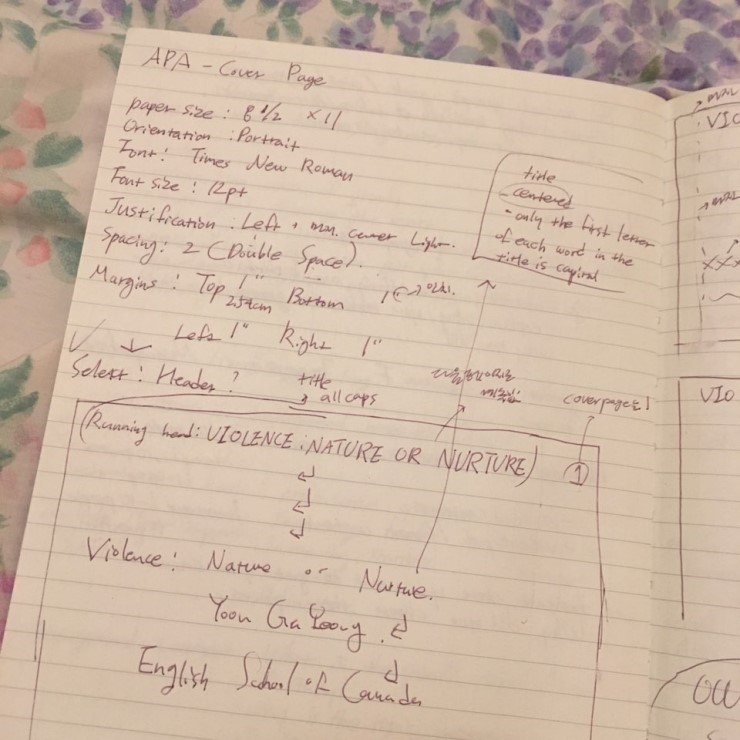 APA - Cover Page
paper size : 8 1/2 × 11
Orientation : Portrait
Font : Times New Roman
Font size : 12pt
Justification : Left
Spacing : 2 (Double Space).
Margins : Top 1" Bottom 1
2.54cm
Left 1" Right 1"
Select : Header ?
title
- centered
- only the first letter
of each word in the
title is capital
title
all caps
coverpage는 1
(Running head: VIOLENCE : NATURE OR NURTURE) ①
Violence : Nature or Nurture.
Yoon Ga Young
English School of Canada
VIO
VIO